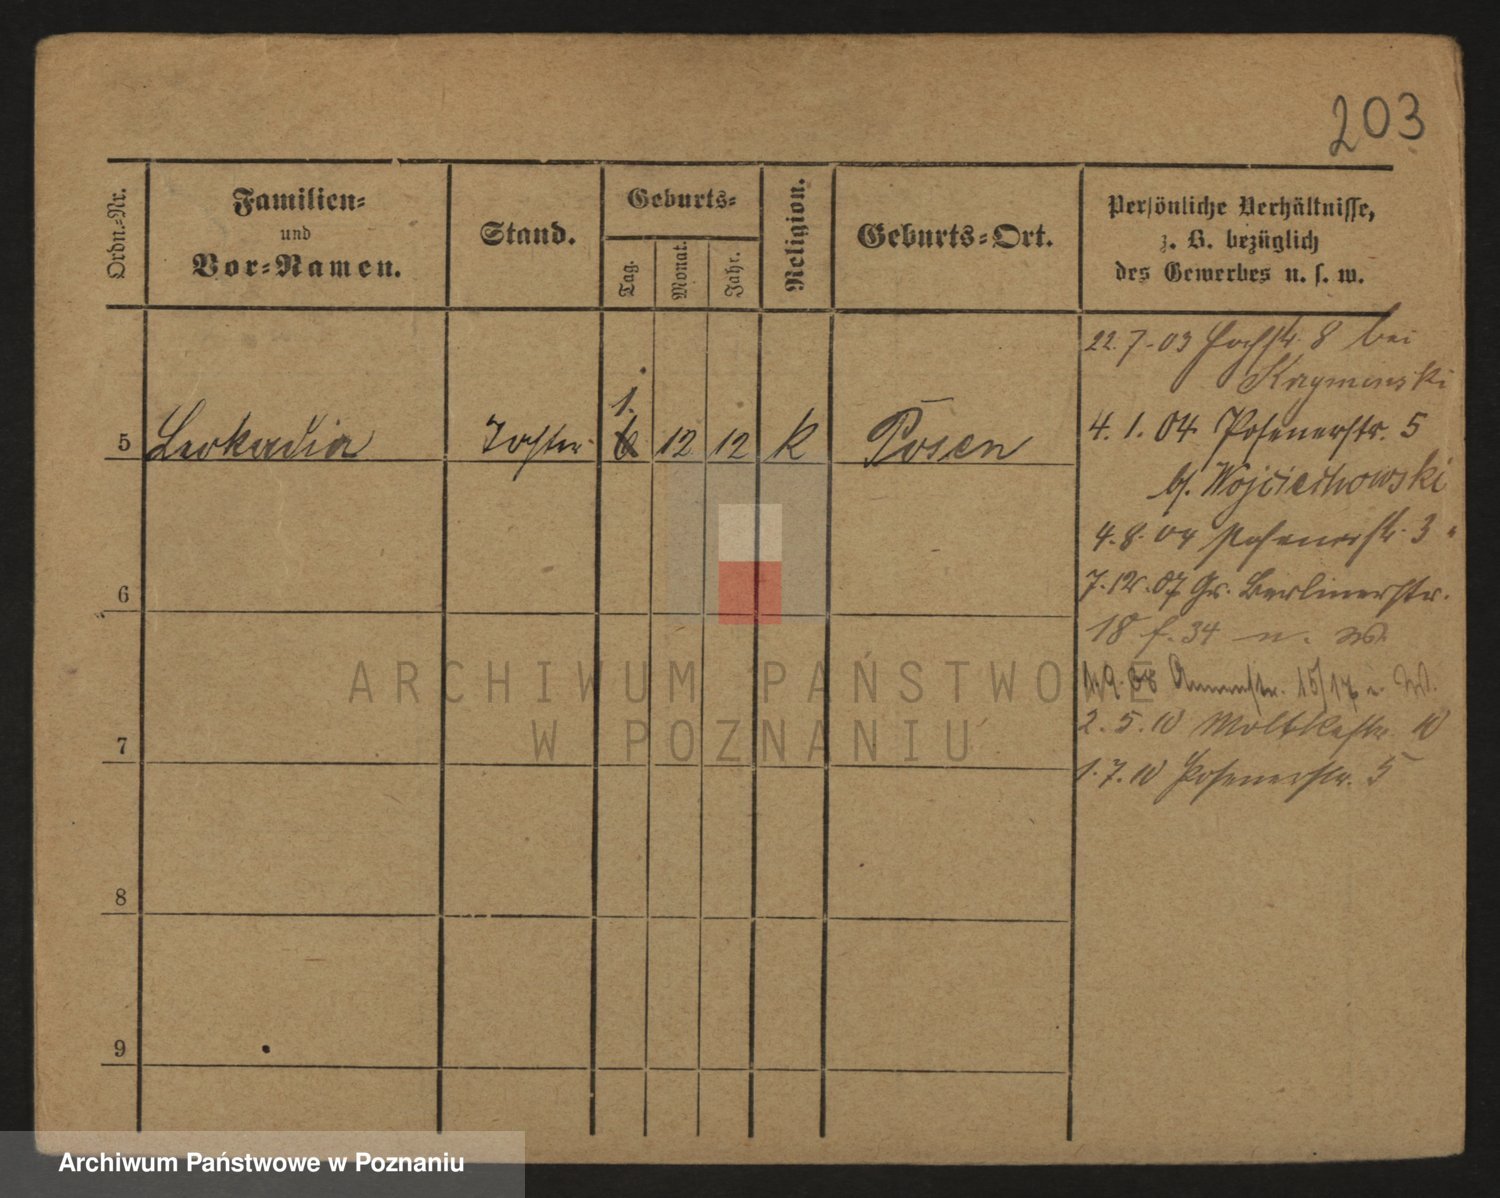 203
Ordn.-Nr.
Familien-
und
Vor-Namen.
Stand.
Geburts-
Tag.
Monat.
Jahr.
Religion.
Geburts-Ort.
Persönliche Verhältnisse,
z. B. bezüglich
des Gewerbes u. s. w.
5 Leokadia Tochter 1. 12 12 K Posen
6
7
8
9
22.7.03 Hochstr. 8 bei
4.1.04 Posenerstr. 5
bei Wojciechowski
4.8.04 Posenerstr. 3
7.12.07 Gr. Berlinerstr.
18 f. 34
15/17
2.5.10 Moltkestr. 10
1.7.10 Posenerstr. 5
ARCHIWUM PAŃSTWOWE
W POZNANIU
Archiwum Państwowe w Poznaniu